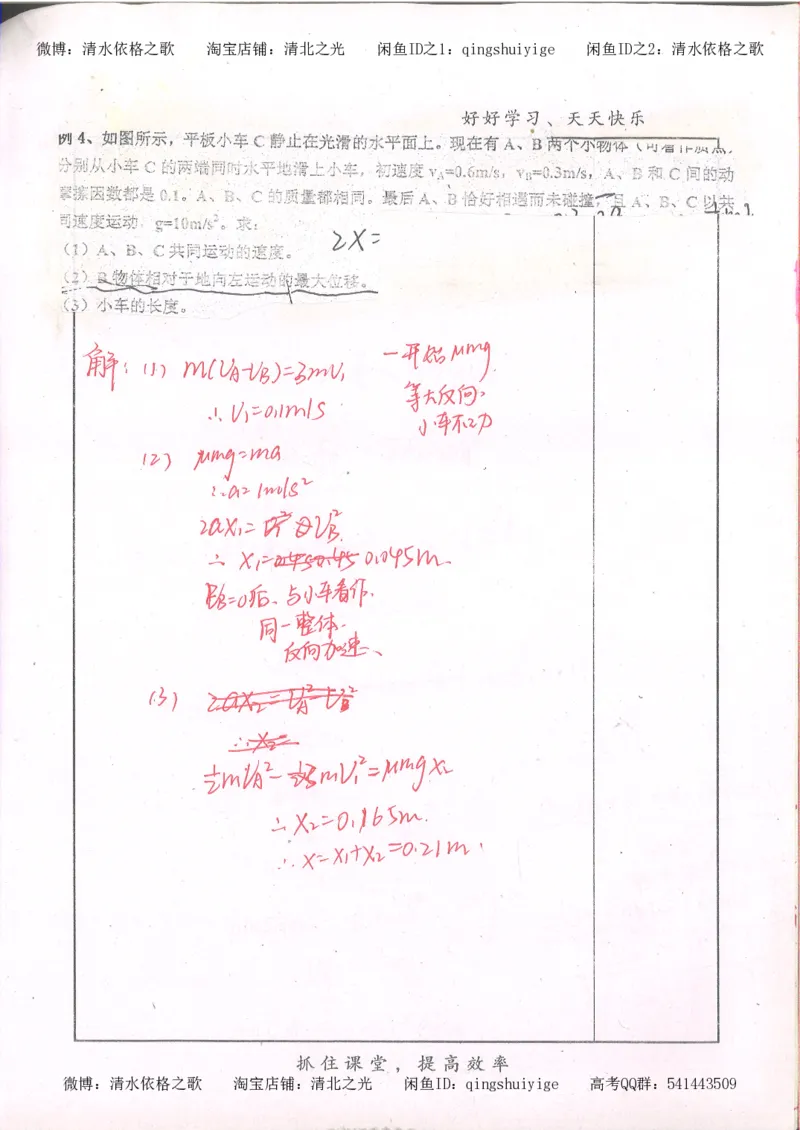 微博：清水依格之歌 淘宝店铺：清北之光 闲鱼ID之1：qingshuiyige 闲鱼ID之2：清水依格之歌
好好学习、天天快乐
例4、如图所示，平板小车C静止在光滑的水平面上。现在有A、B两个小物体（可看作质点）
分别从小车C的两端同时水平地滑上小车，初速度vA=0.6m/s，vB=0.3m/s，A、B和C间的动
摩擦因数都是0.1。A、B、C的质量都相同。最后A、B恰好相遇而未碰撞，且A、B、C以共
同速度运动，g=10m/s²。求：
（1）A、B、C共同运动的速度。
2X=
（2）B物体相对于地向左运动的最大位移。
（3）小车的长度。
解：(1) m(VA-VB)=3mV₁
一开始μmg
等大反向。
小车不动
∴V₁=0.1m/s
(2) μmg=ma
∴a=1m/s²
2aX₁=VB²
∴ X₁=0.045m
VB=0后、与小车看作
同一整体.
反向加速、
(3) 2aX₂=VA²-VB²
∴X₂=
½mVA²-½3mV₁²=μmgx₂
∴X₂=0.165m.
∴X=X₁+X₂=0.21m.
抓住课堂，提高效率
微博：清水依格之歌 淘宝店铺：清北之光 闲鱼ID：qingshuiyige 高考QQ群：541443509